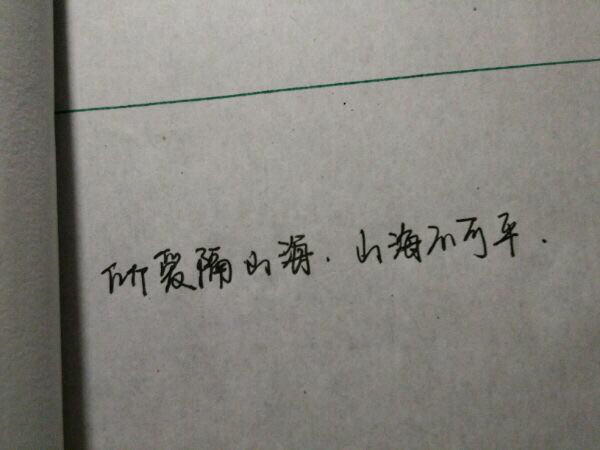 所爱隔山海.山海不可平.